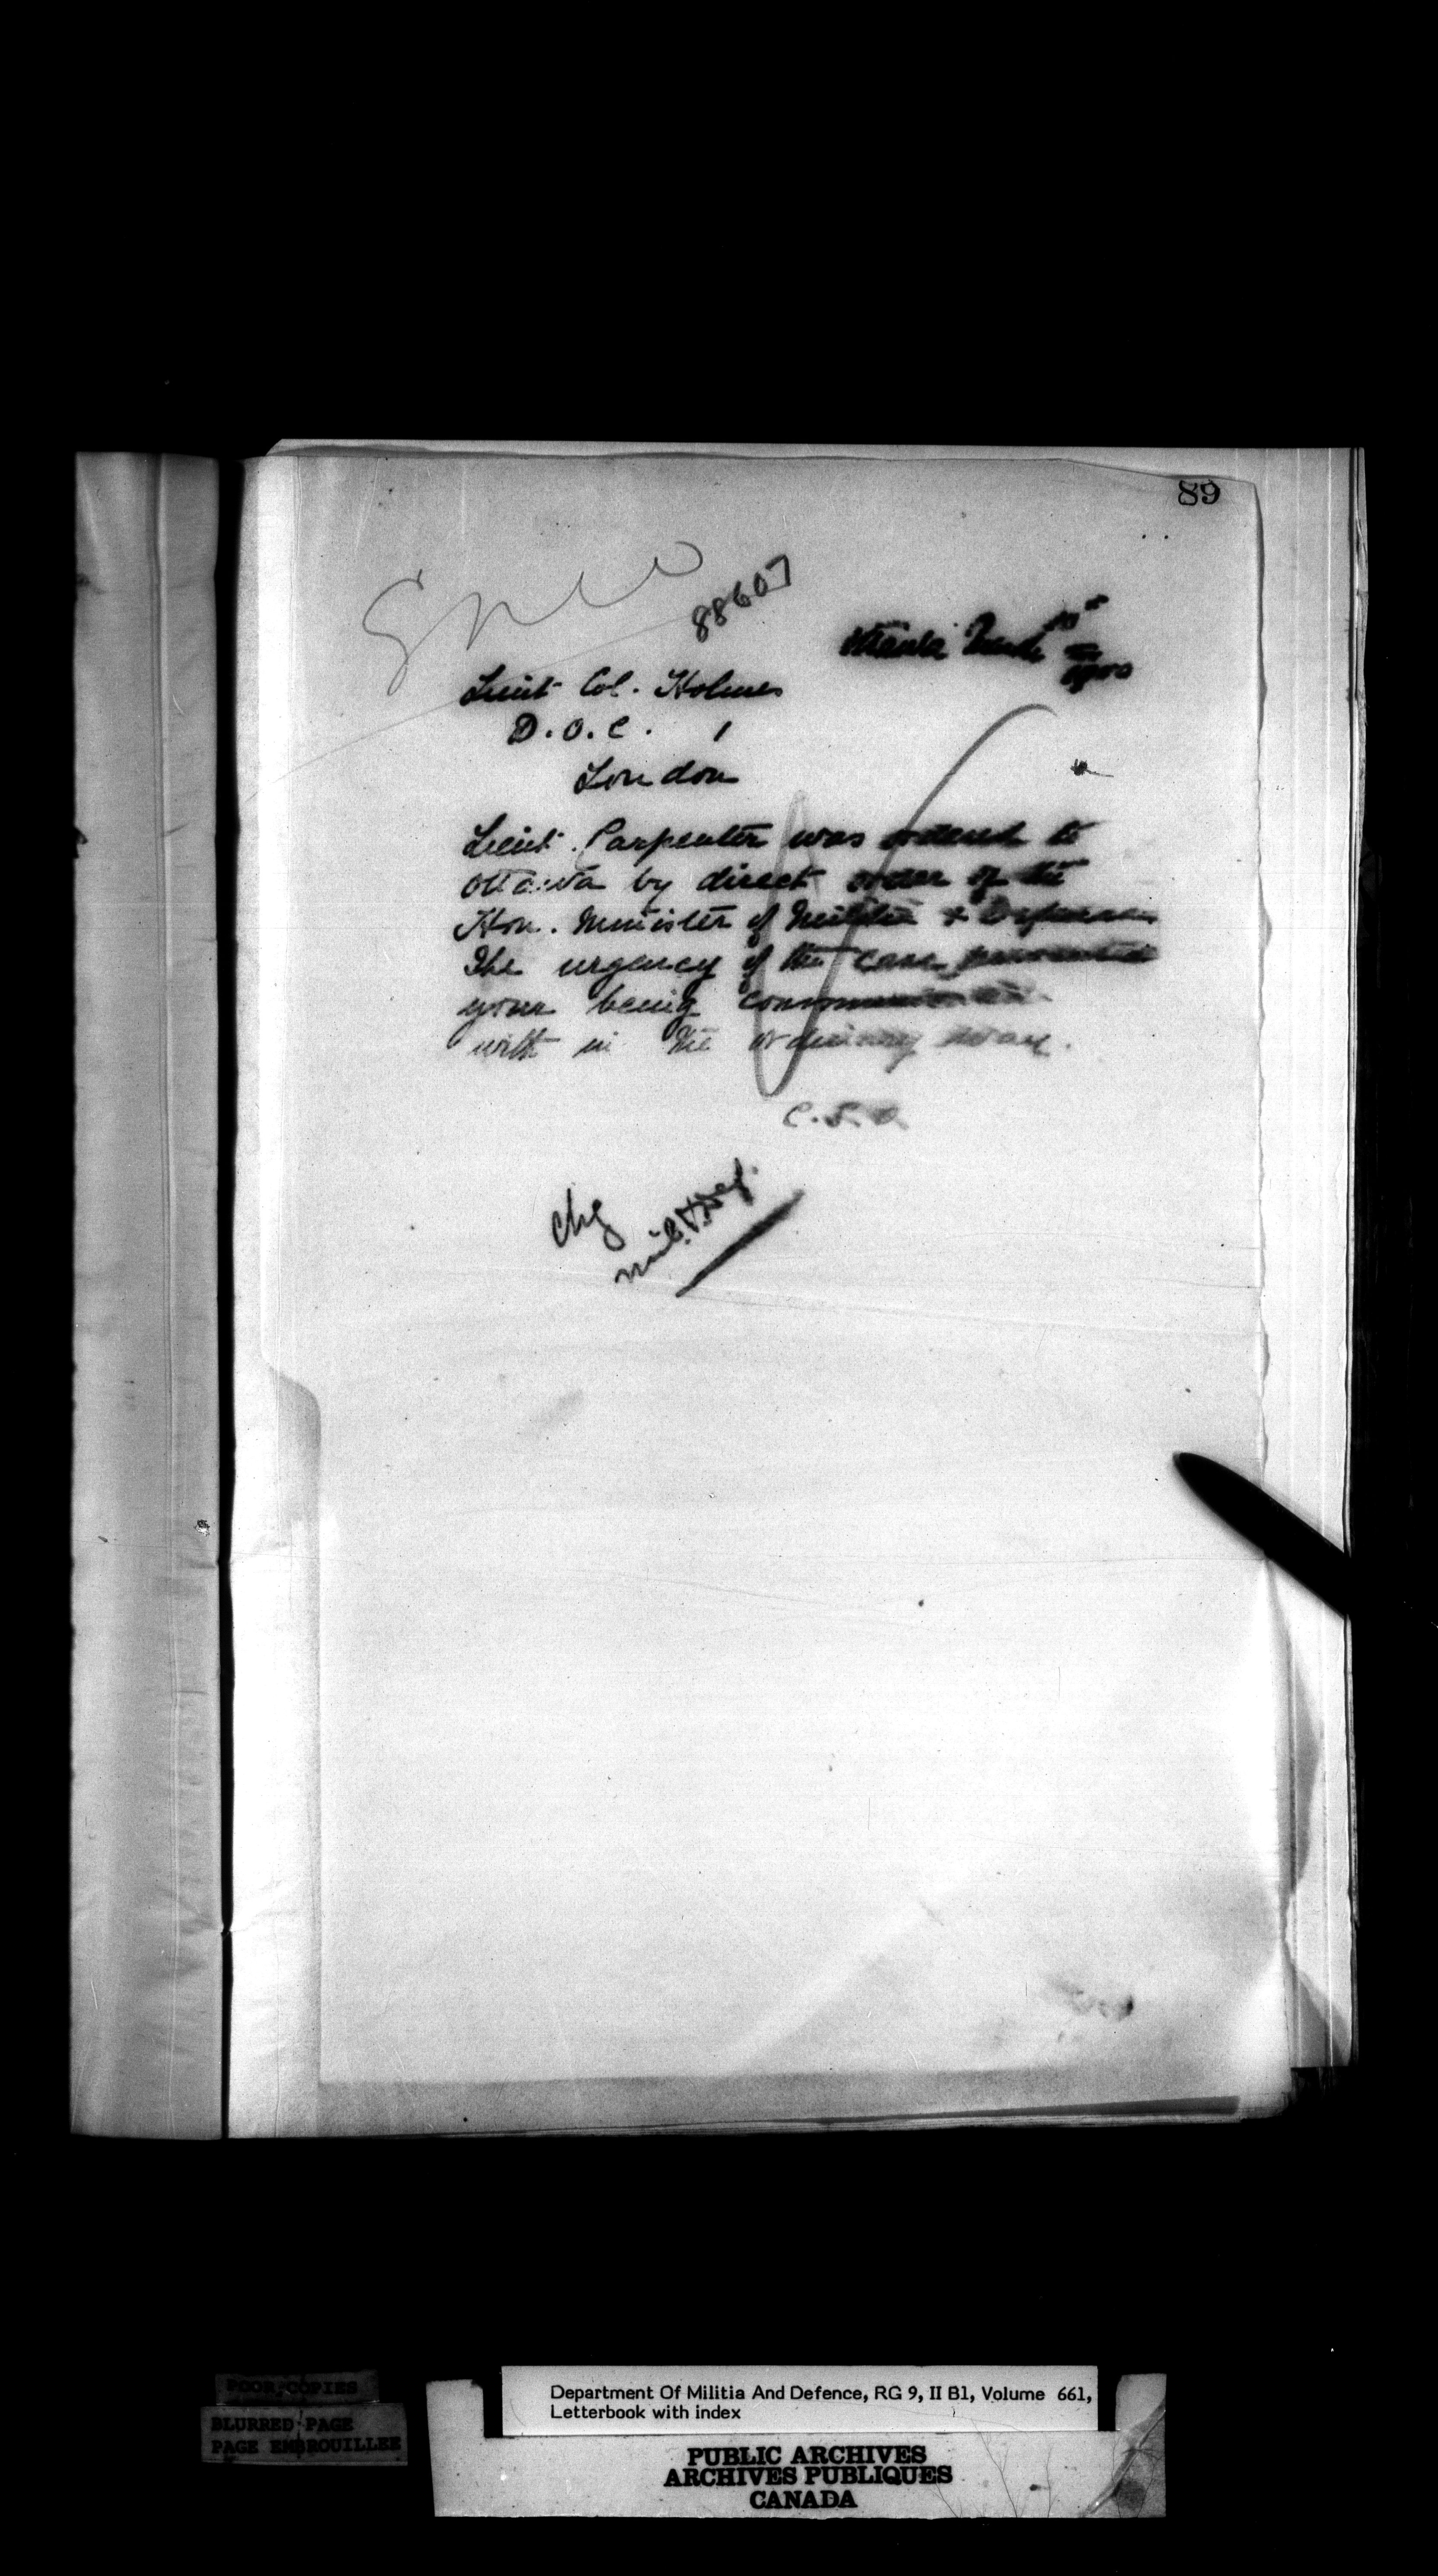 89
88607
Ottawa March 10
1900
Lieut Col. Holmes
D.O.C. 1
London
Lieut. Carpenter was ordered to
Ottawa by direct order of the
Hon. Minister of Militia & Defence
The urgency of the case prevented
your being communicated
with in the ordinary way.
Chg
Mil. & Def.
POOR COPIES
BLURRED PAGE
PAGE EMBROUILLEE
Department Of Militia And Defence, RG 9, II B1, Volume 661,
Letterbook with index
PUBLIC ARCHIVES
ARCHIVES PUBLIQUES
CANADA